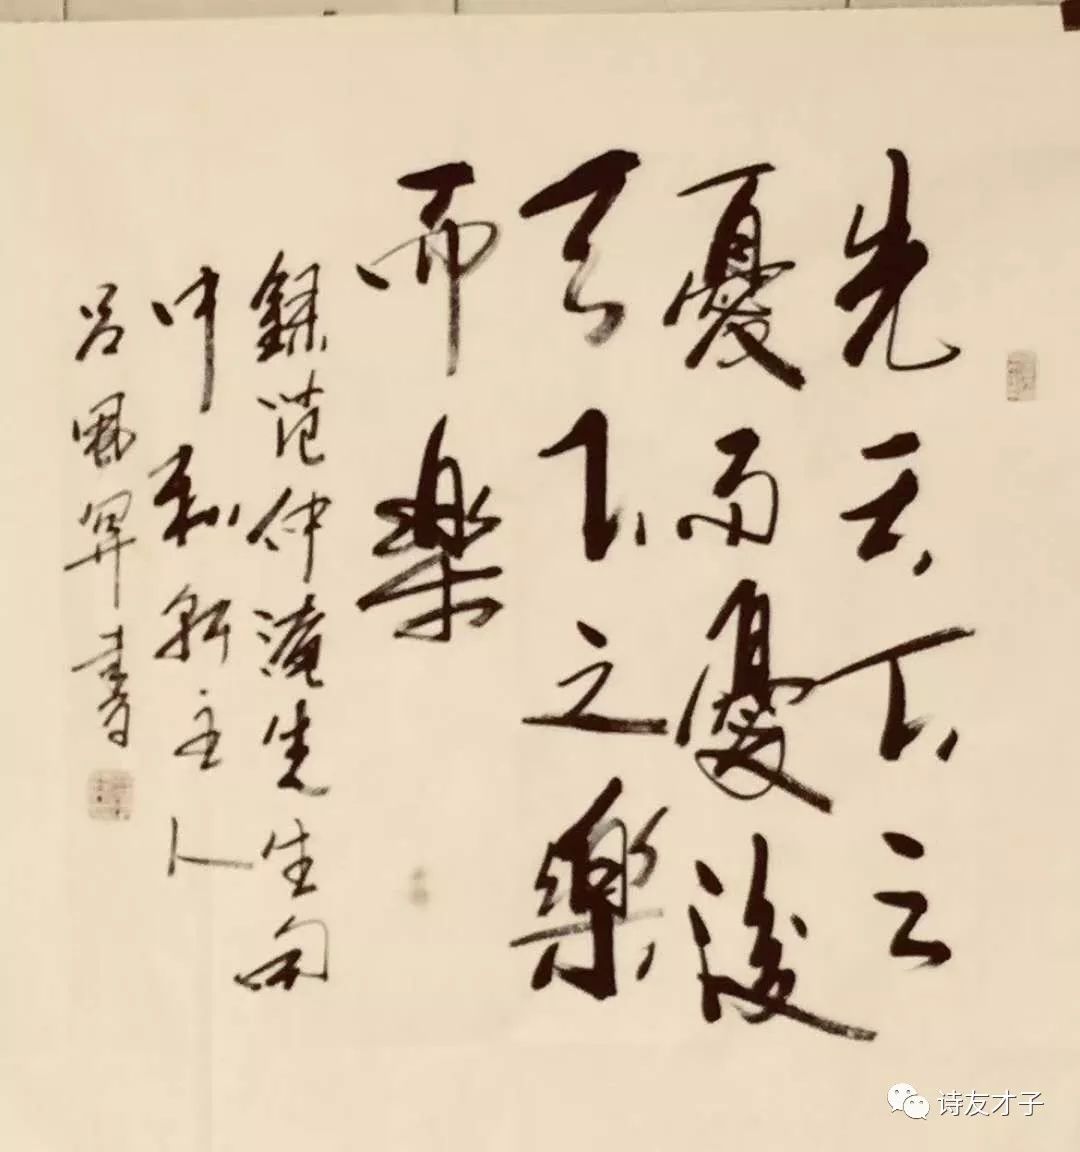 先天下之
憂而憂後
天下之樂
而樂
録范仲淹先生句
中和軒主人
吕國昇書
诗友才子